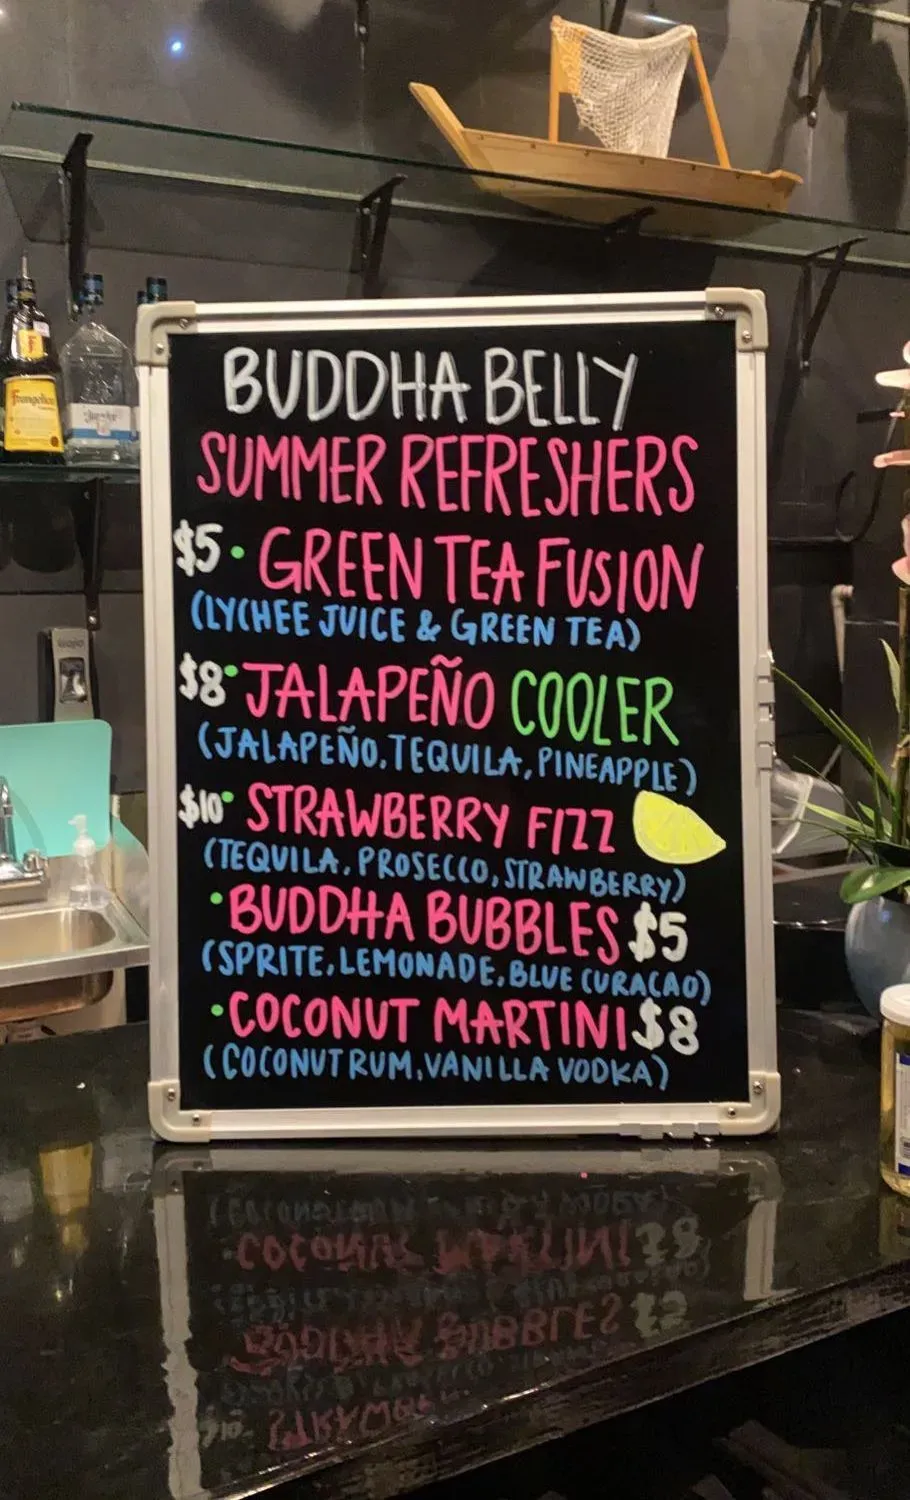 BUDDHA BELLY
SUMMER REFRESHERS
$5 • GREEN TEA FUSION
(LYCHEE JUICE & GREEN TEA)
$8 • JALAPEÑO COOLER
(JALAPEÑO, TEQUILA, PINEAPPLE)
$10 • STRAWBERRY FIZZ
(TEQUILA, PROSECCO, STRAWBERRY)
• BUDDHA BUBBLES $5
(SPRITE, LEMONADE, BLUE CURACAO)
• COCONUT MARTINI $8
(COCONUT RUM, VANILLA VODKA)
Frangelico